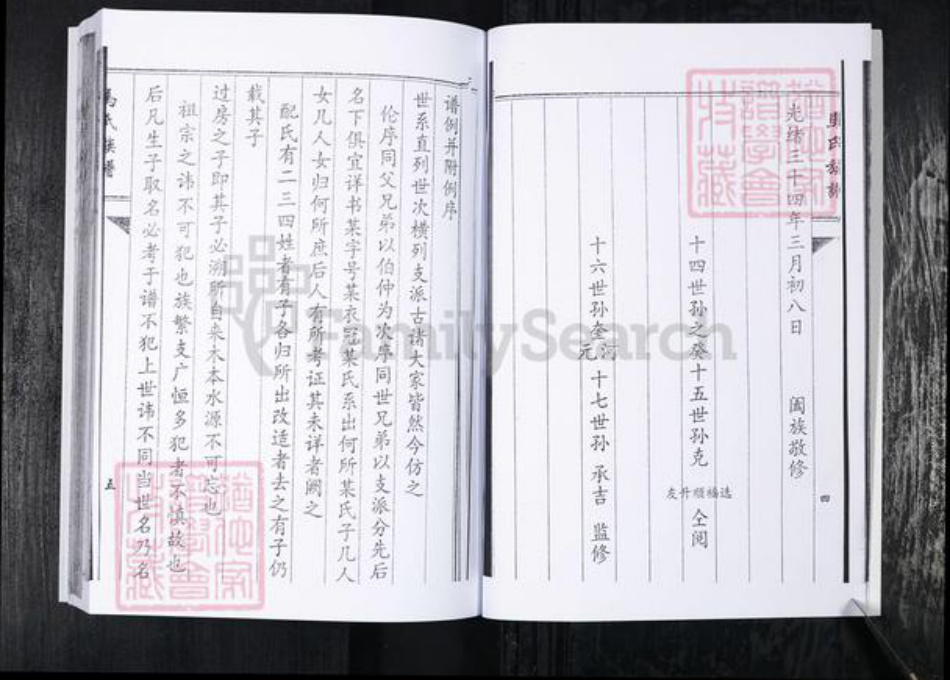 氏族谱
光绪三十四年三月初八日 阖族敬修
十四世孙之癸十五世孙克 选福顺升友 仝阅
十六世孙奎 河元 十七世孙 承吉 监修
四
谱例并附例序
世系直列世次横列支派古诸大家皆然今仿之
伦序同父兄弟以伯仲为次序同世兄弟以支派分先后
名下俱宜详书某字号某衣冠某氏系出何所某氏子几人
女几人女归何所庶后人有所考证其未详者阙之
配氏有二三四姓者有子各归所出改适者去之有子仍
载其子
过房之子即其子必溯所自来木本水源不可忘也
祖宗之讳不可犯也族繁支广恒多犯者不慎故也
后凡生子取名必考于谱不犯上世讳不同当世名乃名
氏族谱
五
FamilySearch